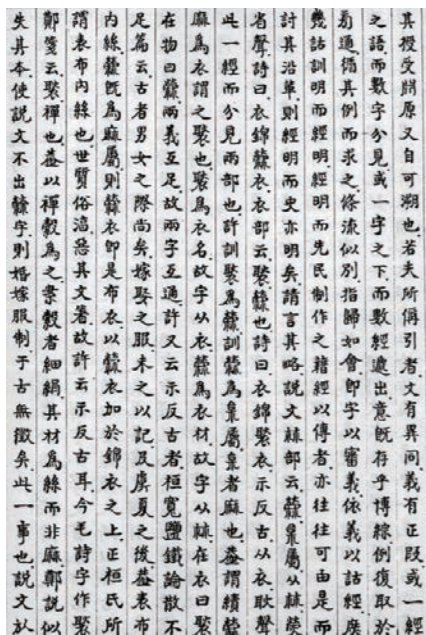 其授受淵原又自可溯也若夫所偁引者文有異同義有正叚或一經
之語而數字分見或一字之下而數經遞出意旣存乎博綜例復取於
旁通循其例而求之條流似別指歸如會卽字以審義依義以詁經庶
幾詁訓明而經明經明而先民制作之藉經以傳者亦往往可由是而
討其沿革則經明而史亦明矣請言其略說文𣏟部云檾枲屬从𣏟熒
省聲詩曰衣錦檾衣衣部云褧檾也詩曰衣錦褧衣示反古从衣耿聲
此一經而分見兩部也許訓褧爲檾訓檾爲枲屬枲者麻也葢謂績檾
麻爲衣謂之褧也褧爲衣名故字从衣檾爲衣材故字从𣏟在衣曰褧
在物曰檾兩義互足故兩字互通許又云示反古者桓寬鹽鐵論散不
足篇云古者男女之際尚矣嫁娶之服未之以記及虞夏之後葢表布
內絲檾旣爲麻屬則檾衣卽是布衣以檾衣加於錦衣之上正桓氏所
謂表布內絲也世質俗湻惡其文著故許云示反古耳今毛詩字作褧
鄭箋云褧襌也葢以襌縠爲之案縠者細絹其材爲絲而非麻鄭說似
失其本使說文不出檾字則婚嫁服制于古無徵矣此一事也說文於